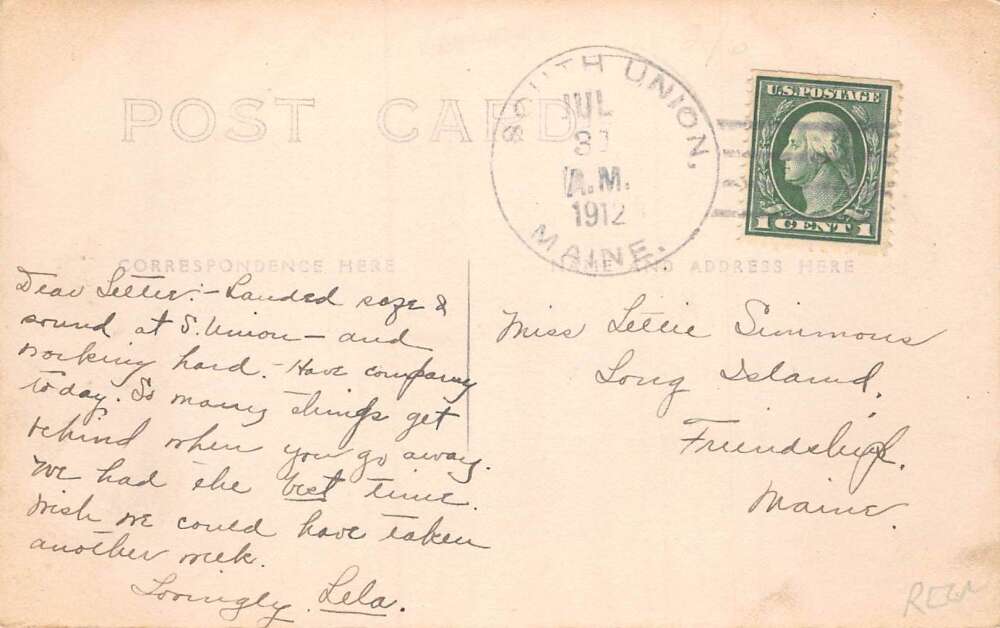 POST CARD
SOUTH UNION,
JUL
A.M.
1912
MAINE.
U.S. POSTAGE
1 CENT 1
CORRESPONDENCE HERE
NAME AND ADDRESS HERE
Dear Lettie:- Landed safe &
sound at S. Union - and
working hard. - Have company
today. So many things get
behind when you go away.
We had the best time.
Wish we could have taken
another week.
Lovingly Lela.
Miss Lettie Simmons
Long Island,
Friendship.
Maine.